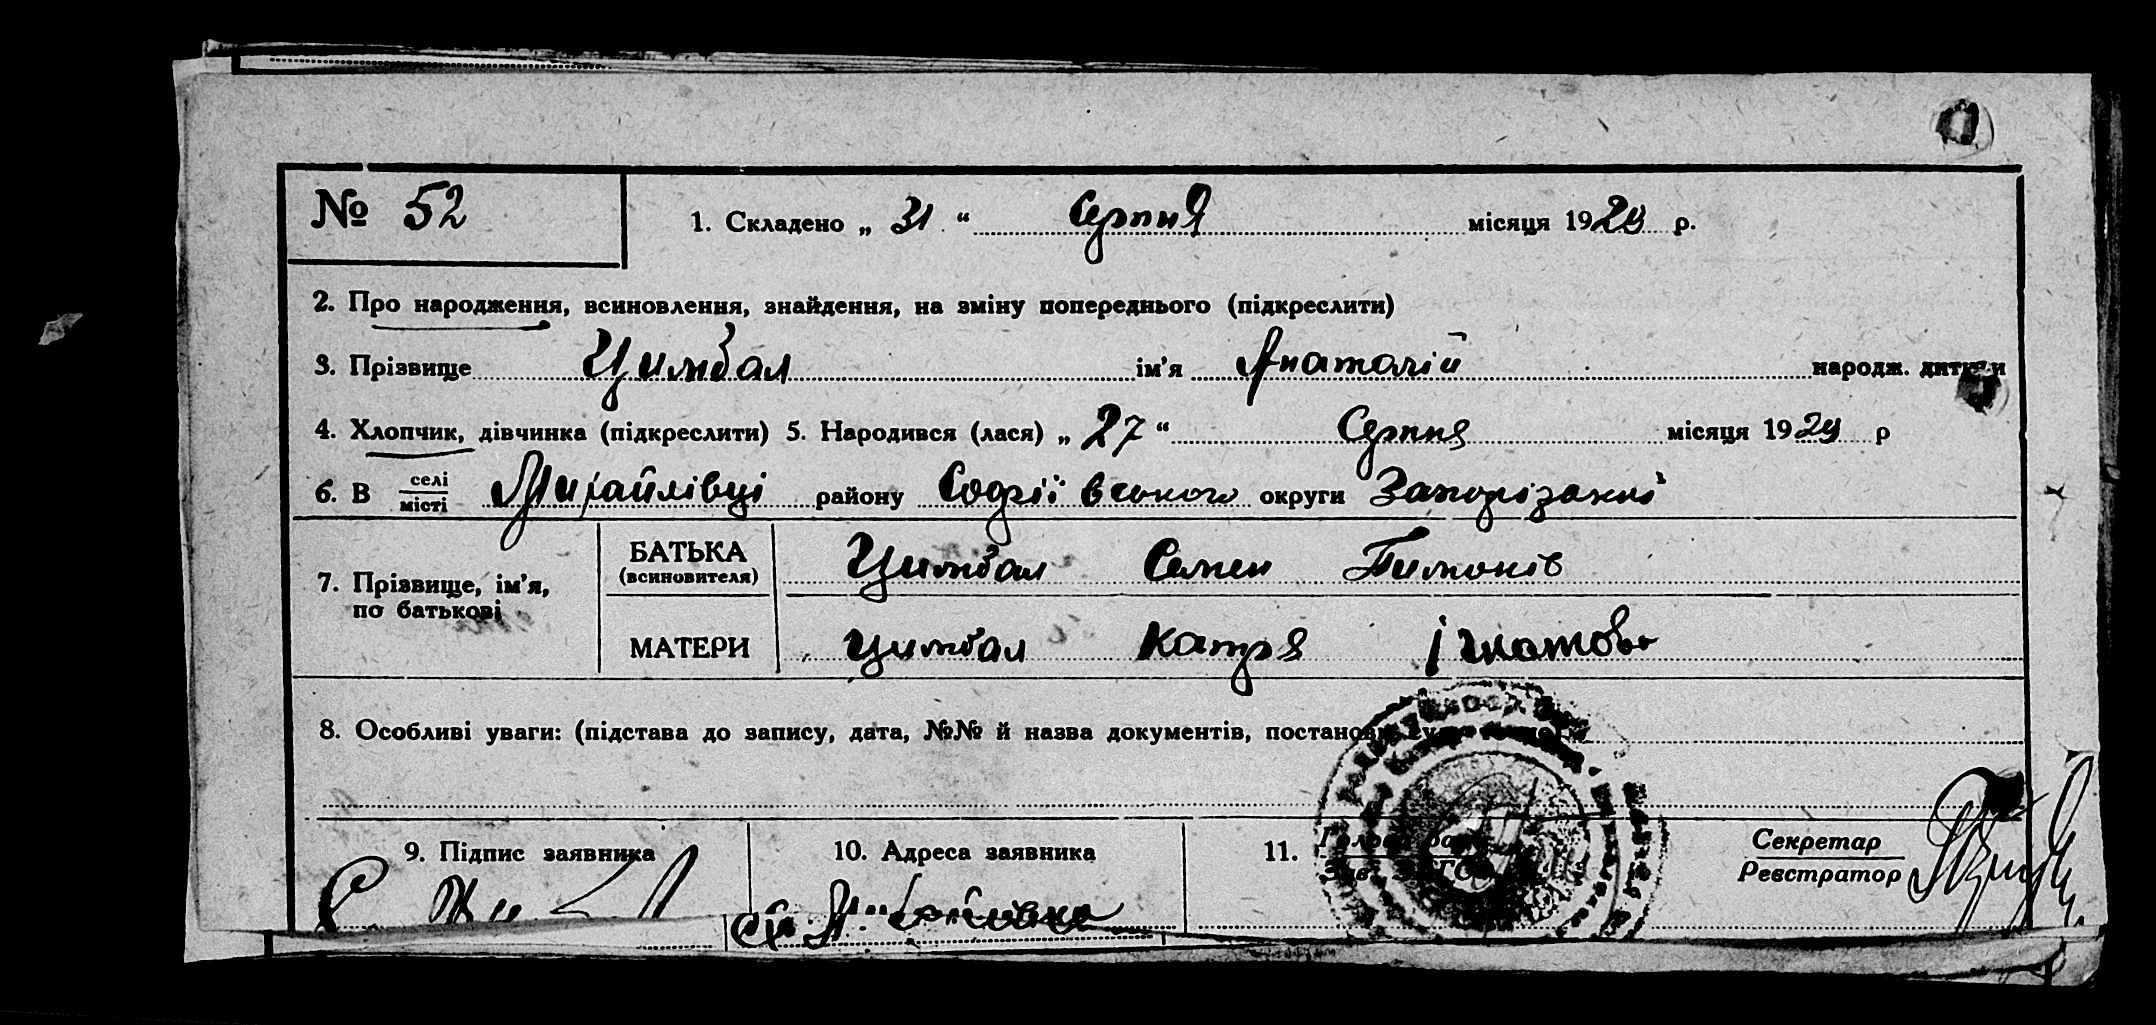 № 52
1. Складено „ 31 “ Серпня місяця 1929 р.
2. Про народження, всиновлення, знайдення, на зміну попереднього (підкреслити)
3. Прізвище Цимбал ім'я Анатолій народж. дитини
4. Хлопчик, дівчинка (підкреслити) 5. Народився (лася) „ 27 “ Серпня місяця 1929 р
6. В селі місті Михайлівці району Софіївського округи Запорізької
7. Прізвище, ім'я, по батькові
БАТЬКА (всиновителя) Цимбал Семен Тимохів
МАТЕРИ Цимбал Катря Ігнатова
8. Особливі уваги: (підстава до запису, дата, №№ й назва документів, постанови
9. Підпис заявника
10. Адреса заявника
11. Секретар
Реєстратор